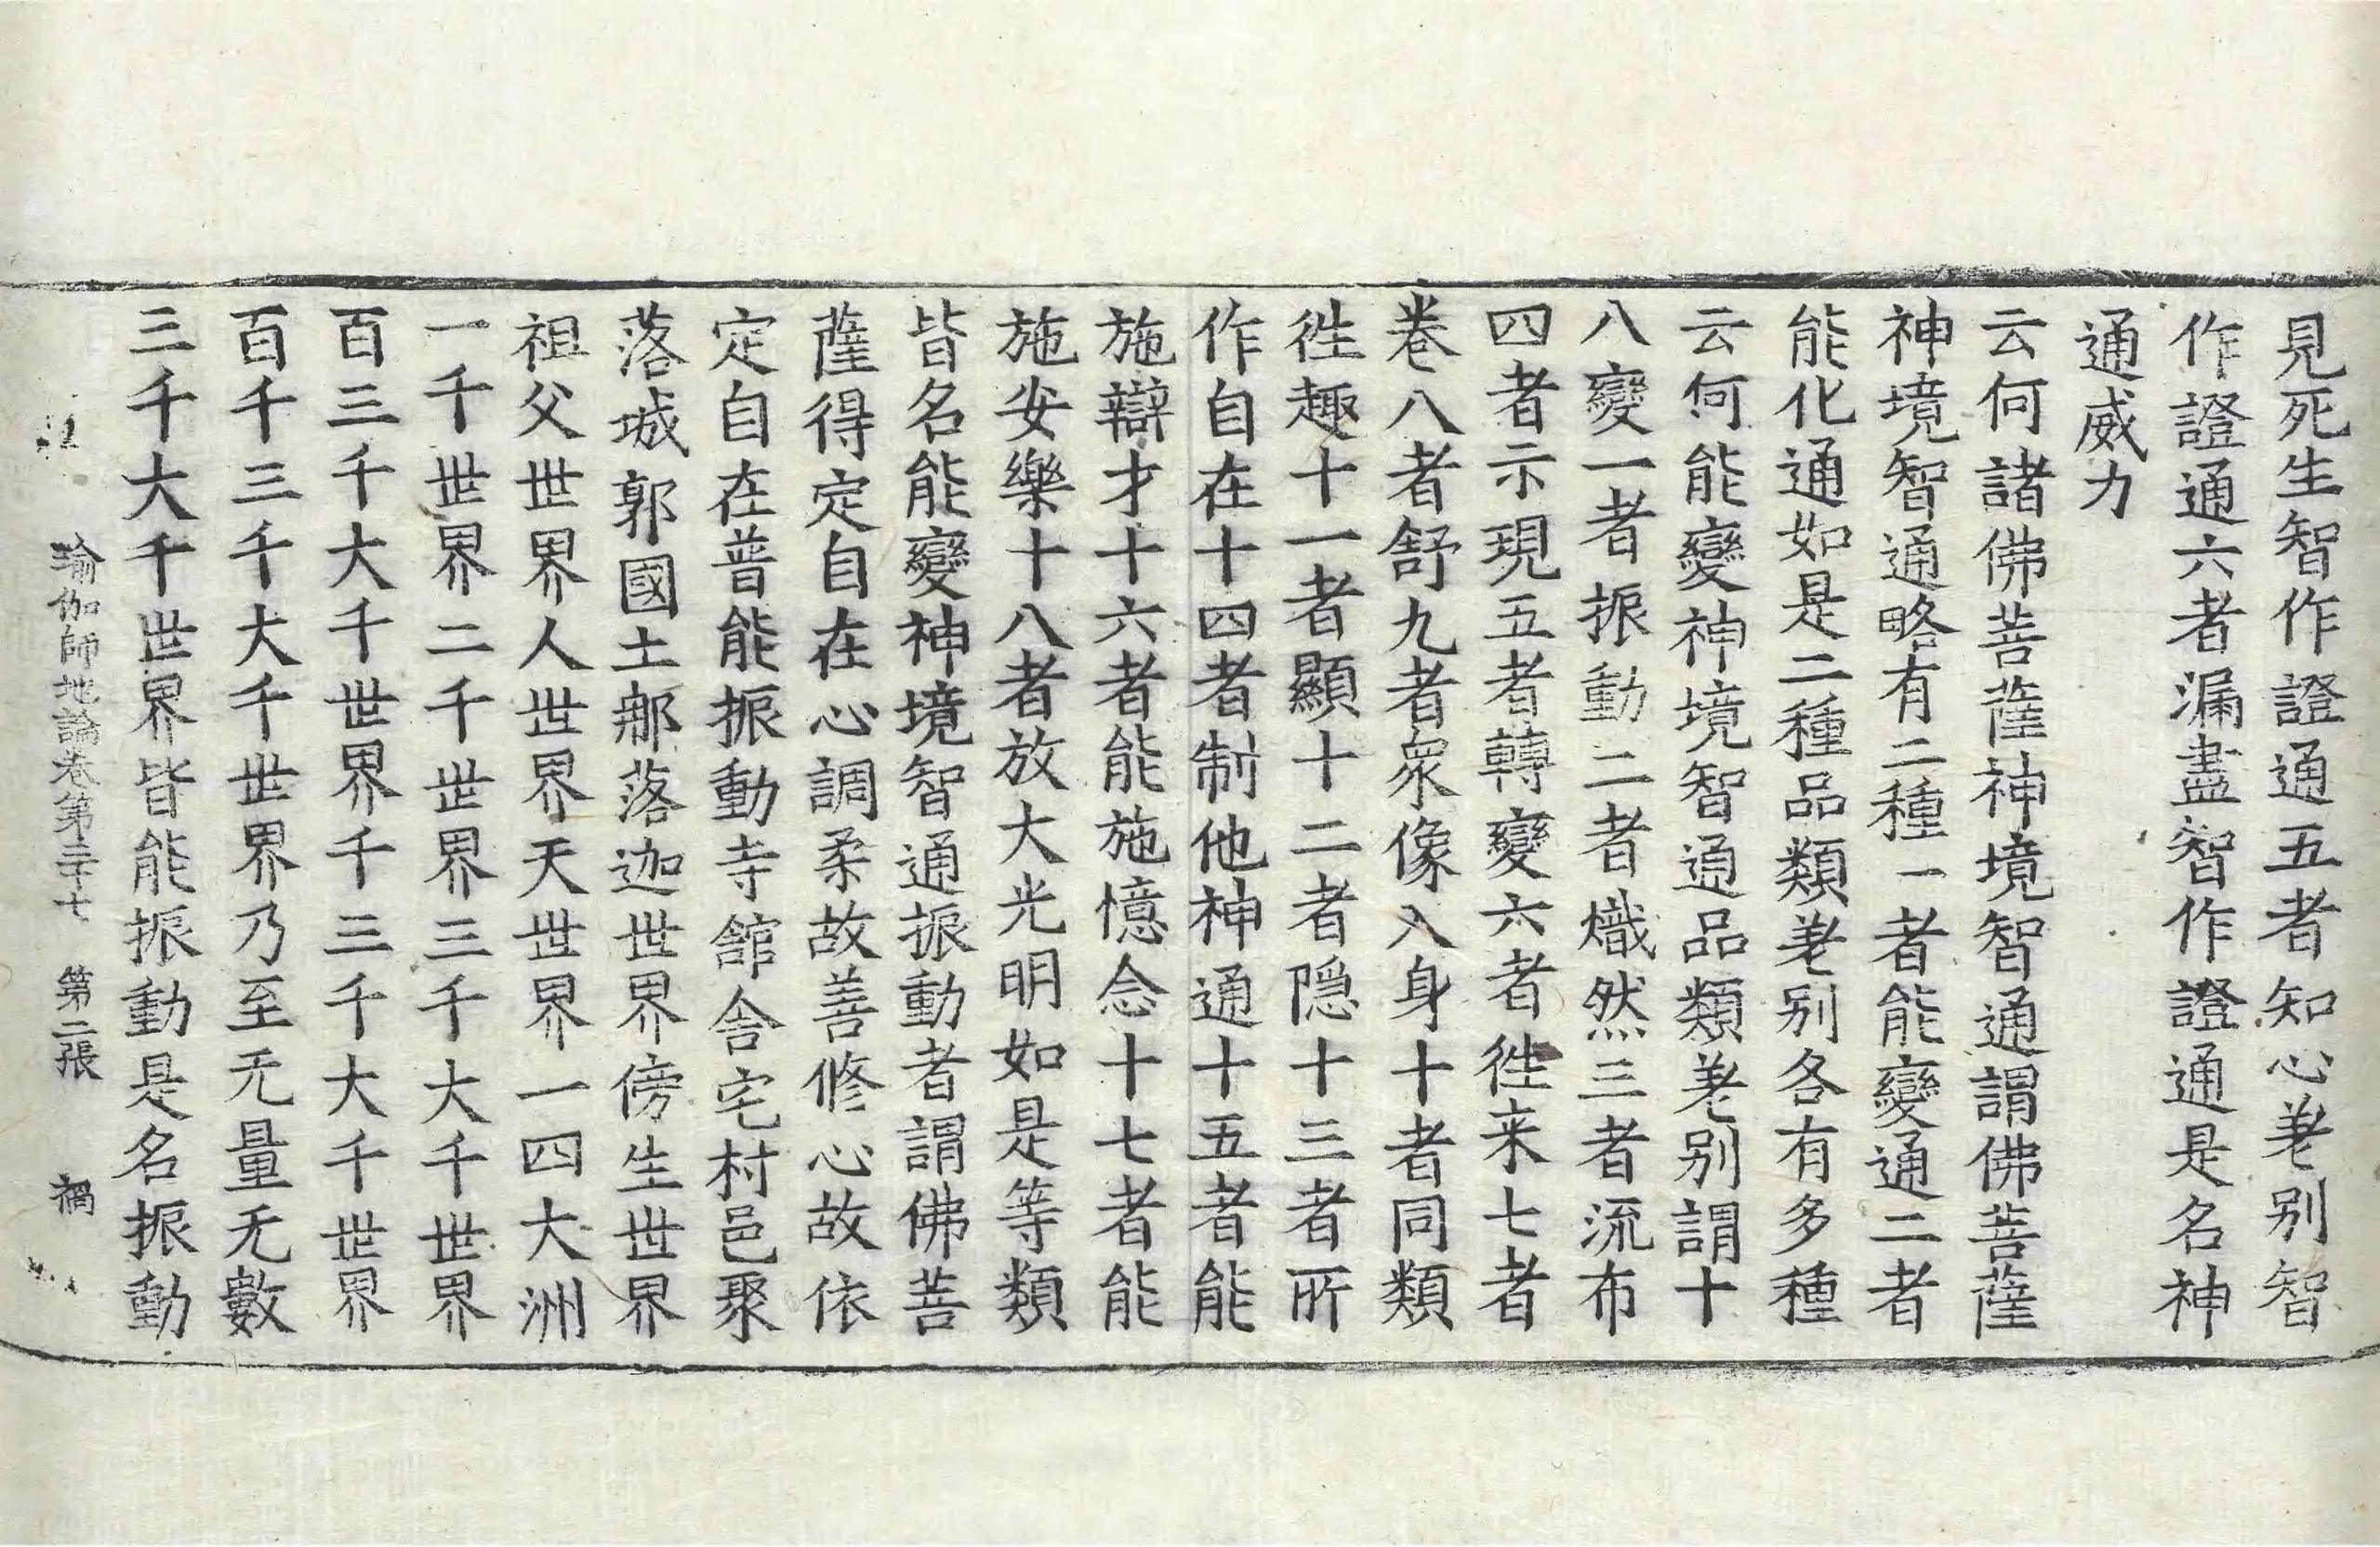 見死生智作證通五者知心差别智
作證通六者漏盡智作證通是名神
通威力
云何諸佛菩薩神境智通謂佛菩薩
神境智通略有二種一者能變通二者
能化通如是二種品類差别各有多種
云何能變神境智通品類差别謂十
八變一者振動二者熾然三者流布
四者示現五者轉變六者徃来七者
卷八者舒九者衆像入身十者同類
徃趣十一者顯十二者隠十三者所
作自在十四者制他神通十五者能
施辯才十六者能施憶念十七者能
施安樂十八者放大光明如是等類
皆名能變神境智通振動者謂佛菩
薩得定自在心調柔故善修心故依
定自在普能振動寺舘舎宅村邑聚
落城郭國土那落迦世界傍生世界
祖父世界人世界天世界一四大洲
一千世界二千世界三千大千世界
百三千大千世界千三千大千世界
百千三千大千世界乃至无量无數
三千大千世界皆能振動是名振動
瑜伽師地論卷第三十七 第二張 禍